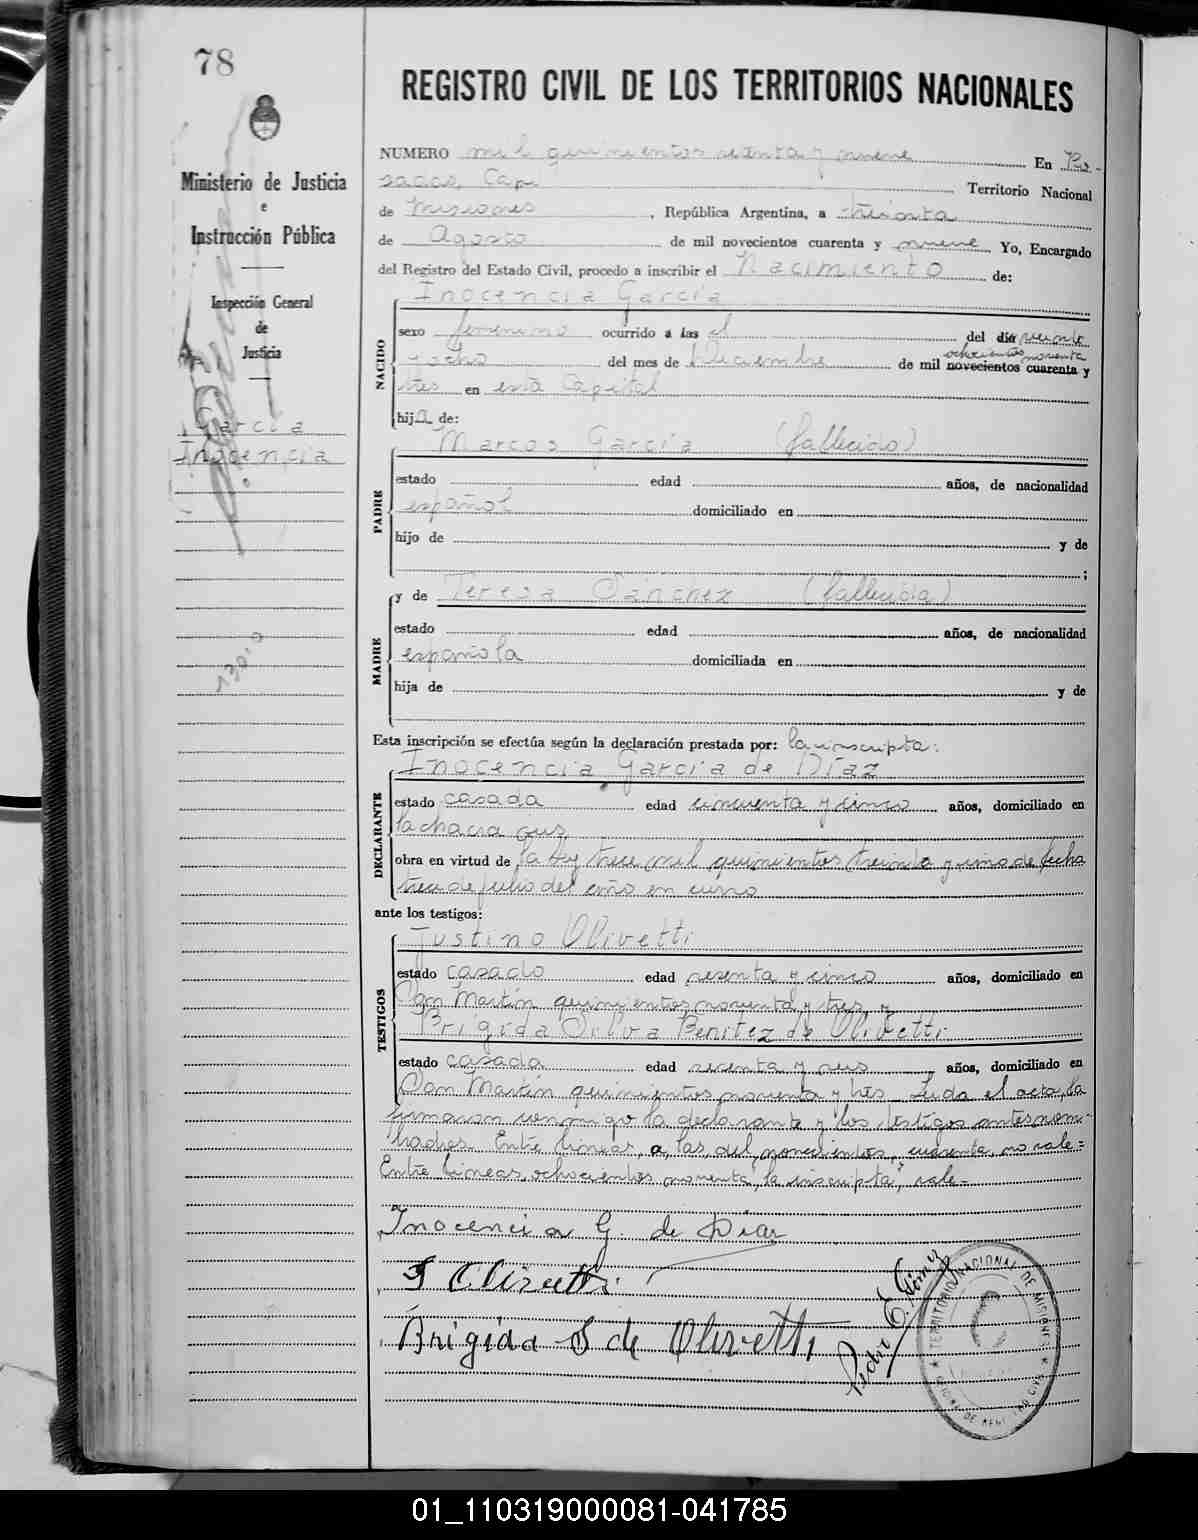 78
REGISTRO CIVIL DE LOS TERRITORIOS NACIONALES
Ministerio de Justicia
e
Instrucción Pública
Inspección General
de
Justicia
García
Inocencia
13010
NUMERO mil quinientos setenta y nueve En Po-
sadas, Cap. Territorio Nacional
de Misiones, República Argentina, a treinta
de Agosto de mil novecientos cuarenta y nueve Yo, Encargado
del Registro del Estado Civil, procedo a inscribir el Nacimiento de:
NACIDO
Inocencia García
sexo femenino ocurrido a las el del día veinte
ochocientos noventa
y ocho del mes de diciembre de mil novecientos cuarenta y
tres en esta Capital
hija de:
PADRE
Marcos García (fallecido)
estado edad años, de nacionalidad
español domiciliado en
hijo de y de
;
MADRE
y de Teresa Sánchez (fallecida)
estado edad años, de nacionalidad
española domiciliada en
hija de y de
Esta inscripción se efectúa según la declaración prestada por: la inscripta:
DECLARANTE
Inocencia García de Díaz
estado casada edad cincuenta y cinco años, domiciliado en
la chacra
obra en virtud de la ley trece mil quinientos treinta y uno de fecha
trece de julio del año en curso
ante los testigos:
TESTIGOS
Justino Olivetti
estado casado edad sesenta y cinco años, domiciliado en
San Martín quinientos noventa y tres y
Brígida Silva Benítez de Olivetti
estado casada edad sesenta y seis años, domiciliado en
San Martín quinientos noventa y tres. Leída el acta, la
firmaron conmigo la declarante y los testigos antes nom-
brados. Entre líneas, a, las, del, novecientos, cuarenta, no vale=
Entre líneas, ochocientos noventa, la inscripta, vale-
Inocencia G. de Díaz
J Olivetti
Brigida S de Olivetti
Pedro E. Gómez
TERRITORIO NACIONAL DE MISIONES
01_110319000081-041785